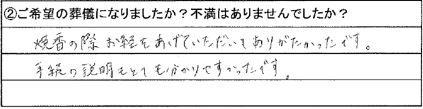 ②ご希望の葬儀になりましたか？不満はありませんでしたか？
焼香の際お経をあげていただいてありがたかったです。
手続の説明もとても分かりやすかったです。